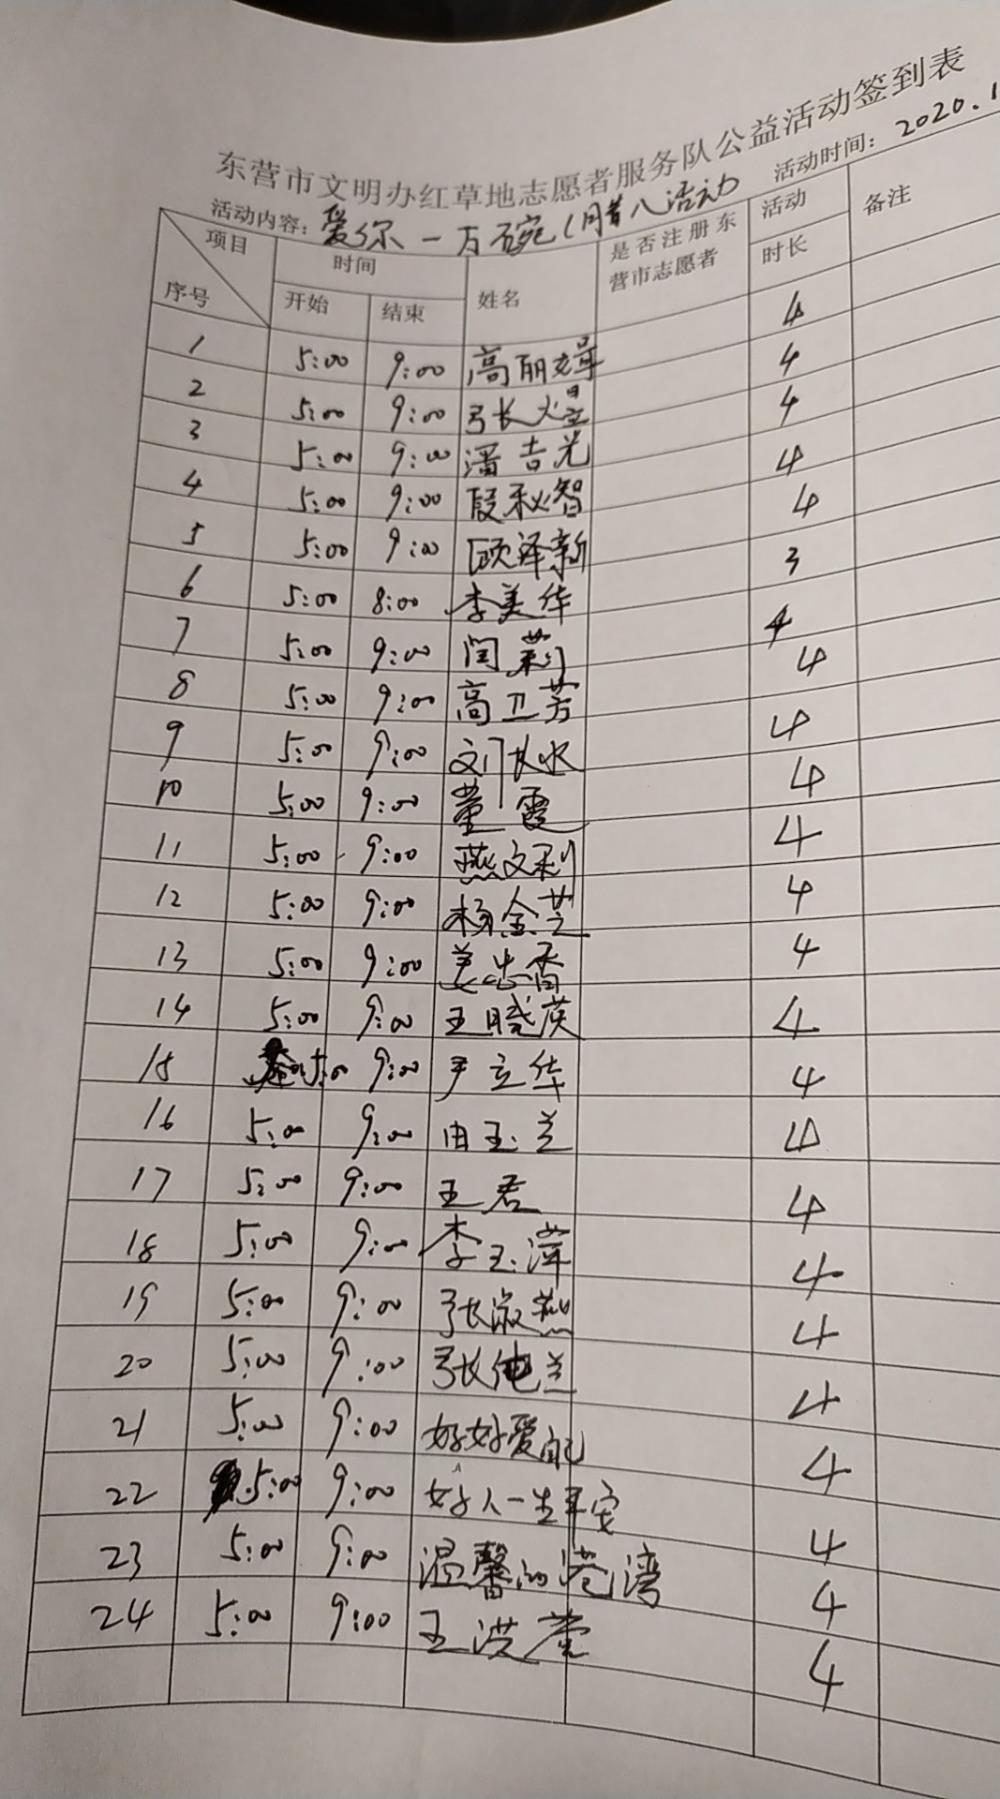 东营市文明办红草地志愿者服务队公益活动签到表
活动内容：爱你一万碗（腊八活动 活动时间：2020.1
项目 时间 姓名 是否注册东营市志愿者 活动时长 备注
序号 开始 结束
1 5:00 9:00 高丽婷 4
2 5:00 9:00 张煜 4
3 5:00 9:00 潘吉光 4
4 5:00 9:00 殷秋智 4
5 5:00 9:00 顾泽新 4
6 5:00 8:00 李美华 3
7 5:00 9:00 闫莉 4
8 5:00 9:00 高卫芳 4
9 5:00 9:00 刘长水 4
10 5:00 9:00 董霞 4
11 5:00 9:00 燕文利 4
12 5:00 9:00 杨金芝 4
13 5:00 9:00 姜忠香 4
14 5:00 9:00 王晓英 4
15 5:00 9:00 尹立华 4
16 5:00 9:00 由玉兰 4
17 5:00 9:00 王君 4
18 5:00 9:00 李玉萍 4
19 5:00 9:00 张淑燕 4
20 5:00 9:00 张兰 4
21 5:00 9:00 好好爱自己 4
22 5:00 9:00 好人一生平安 4
23 5:00 9:00 温馨的港湾 4
24 5:00 9:00 王洪 4